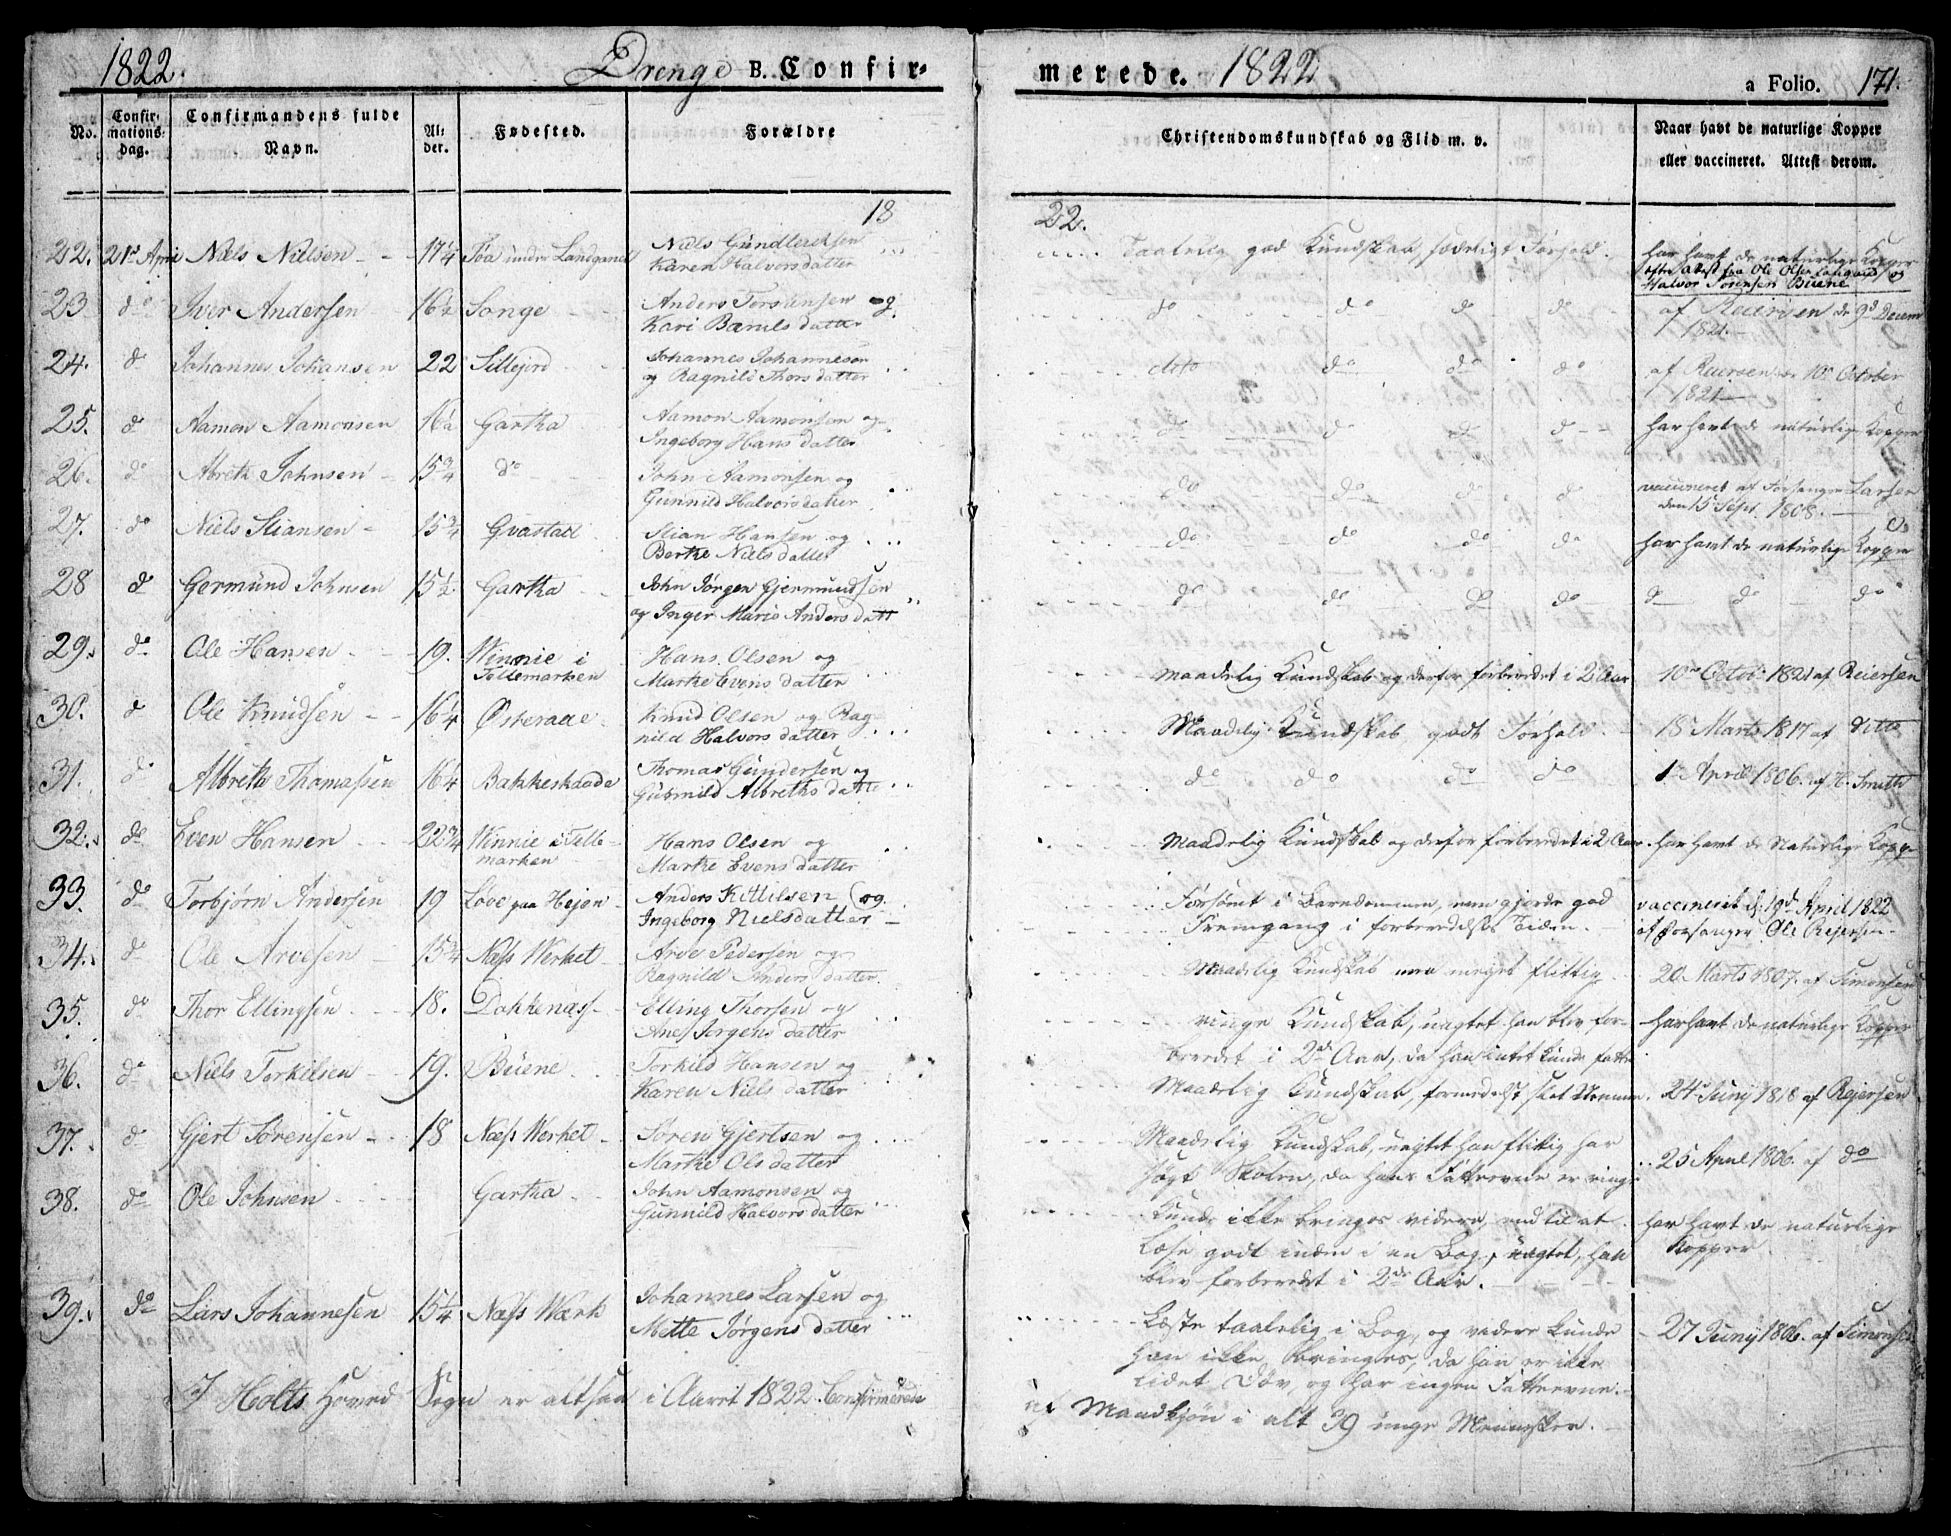 1822. Drenge B. Confir-
merede. 1822 a Folio. 171.
No. Confirmations-dag. Confirmandens fulde Navn. Alder. Fødested. Forældre
Christendomskundskab og Flid m. v. Naar havt de naturlige Kopper eller vaccineret. Attest derom.
18 22.
22. 21de April Niels Nielsen 17¼ under Niels Gundlerchsen
Karen Halvorsdatter
Taalelig god Kundskab, sædeligt Forhold. har havt de naturlige Kopper
efter Attest fra Ole Olsen og
Halvor Sørensen Buene
23 do Iver Andersen 16½ Songe Anders Tersansen og
Kari Barnlsdatter
do do do do af Reiersen de 9d Decem
1821.
24. do Johannes Johansen 22 Sillejord Johannes Johannesen
og Ragnild Thorsdatter
dito do do do af Reiersen 10de October
1821
25. do Aamon Aamonsen 16½ Gartha Aamon Aamonsen og
Ingeborg Hansdatter
do do do do har havt de naturlige Kopper
26. do Abreth Johnsen 15¾ do John Aamonsen og
Gunnild Halvorsdatter
do do do do vaccineret af Forsanger Larsen
den 15 Sept. 1808.
27. do Niels Stiansen 15¾ Gvastad Stian Hansen og
Berthe Nielsdatter
do do do do har havt de naturlige Kopper
28 do Germund Johnsen 15½ Gartha John Jørgen Gjermundsen
og Inger Marie Andersdatt
do do do do do do do
29. do Ole Hansen 19. Winnie i
Tellemarken Hans Olsen og
Marthe Evensdatter
Maadelig Kundskab og derfor forberedet i 2 Aar 10de Octob: 1821 af Reiersen
30. do Ole Knudsen 16¼ Østeraae Knud Olsen og Rag-
nild Halvorsdatter
Maadelig Kundskab, godt Forhold. 18 Marts 1817 af ditto
31. do Albreth Thomassen 16¼ Bakkeskaade Thomas Gundersen og
Gunnild Albrethsdatte
do do do do 1 April 1806. af H. Smith
32. do Even Hansen 22¾ Winnie i Telle-
marken Hans Olsen og
Marthe Evensdatter
Maadelig Kundskab og derfor forberedet i 2 Aar. har havt de Naturlige Kopp
33. do Torbjørn Andersen 19 Løve paa Hejen Anders Kittilsen (og
Ingeborg Nielsdatter
Forsømt i Barndommen, men gjorde god
Fremgang i forberedelses Tiden. vaccineret d: 19d April 1822
af Forsanger Ole Rejersen.
34. do Ole Arvesen 15¾ Næss Werket Arve Pedersen og
Ragnild Andersdatter.
Maadelig Kundskab men meget flittig 20. Marts 1807. af Simonsen
35. do Thor Ellingsen 18. Dakkenæs Elling Thorsen og
Ane Jørgensdatter
ringe Kundskab, uagtet han blev for-
beredet i 2de Aar, da han intet kunde fatte har havt de naturlige Kopper
36. do Niels Torkilsen 19. Buene Torkild Hansen og
Karen Nielsdatter
Maadelig Kundskab, formedelst slet Nemme. 24 Juny 1818 af Rejersen
37. do Gjert Sørensen 18 Næss Werket Søren Gjertsen og
Marthe Olsdatter
Maadelig Kundskab, uagtet han flittig har
søgt Skolen, da hans Fatteevne er ringe 25 April 1806. af do
38. do Ole Johnsen Gartha John Aamonsen og
Gunnild Halvorsdatter
Kunde ikke bringes videre, end til at
læse godt inden i en Bog, uagtet, han
blev forberedet i 2de Aar. har havt de naturlige
Kopper.
39. do Lars Johannesen 15¼ Næss Wærk Johannes Larsen og
Mette Jørgensdatter
Læste taalelig i Bog, og videre kunde
han ikke bringes, da han er ikke
lidet Døv, og har ingen Fatteevne. 27 Juny 1806. af Simonsen
I Holts Hoved Sogn er altsaa i Aaret 1822 Confirmerede
af Mandkjøn i alt 39 unge Mennesker.